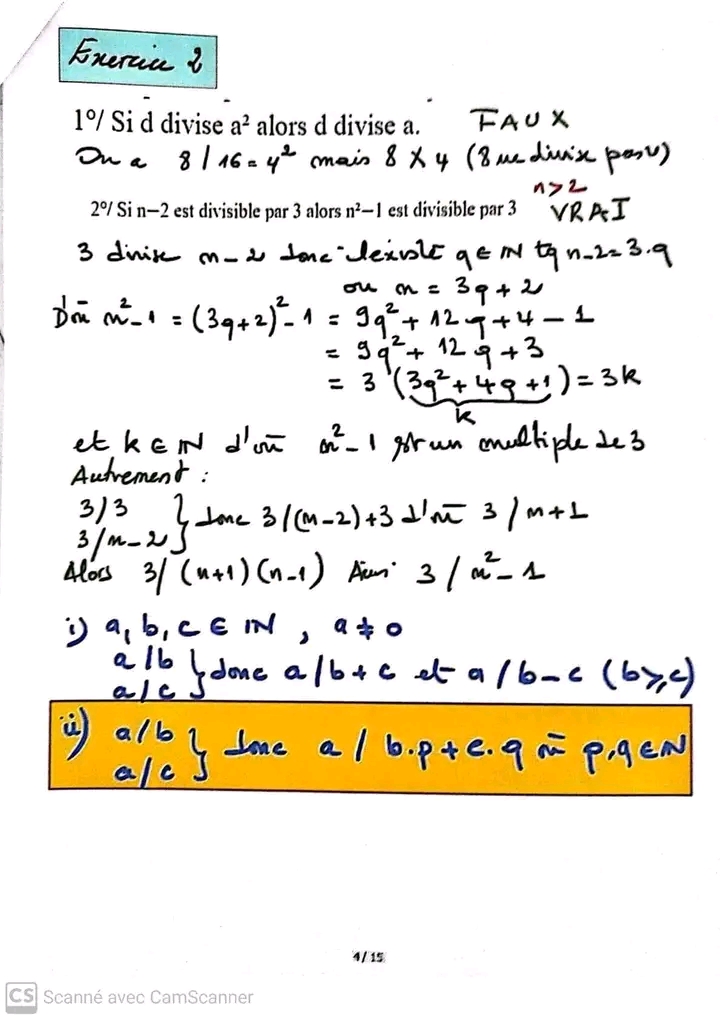 Exercice 2
1°/ Si d divise a² alors d divise a. FAUX
On a 8 / 16 = 4² mais 8 ∤ 4 (8 ne divise pas 4)
n>2
2°/ Si n–2 est divisible par 3 alors n²–1 est divisible par 3 VRAI
3 divise n-2 donc il existe q ∈ IN tq n-2 = 3.q
ou n = 3q + 2
D'où n²-1 = (3q+2)²-1 = 9q² + 12q + 4 - 1
= 9q² + 12q + 3
= 3 (3q² + 4q + 1) = 3k
k
et k ∈ IN d'où n²-1 est un multiple de 3
Autrement :
3/3
3/n-2 } donc 3/(n-2)+3 d'où 3 / n+1
Alors 3/ (n+1)(n-1) Ainsi 3 / n²-1
i) a, b, c ∈ IN , a ≠ 0
a/b
a/c } donc a/b+c et a/b-c (b≥c)
ii) a/b
a/c } donc a / b.p + c.q où p,q ∈ IN
4/15
CS Scanné avec CamScanner